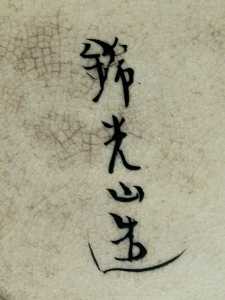 錦光山造